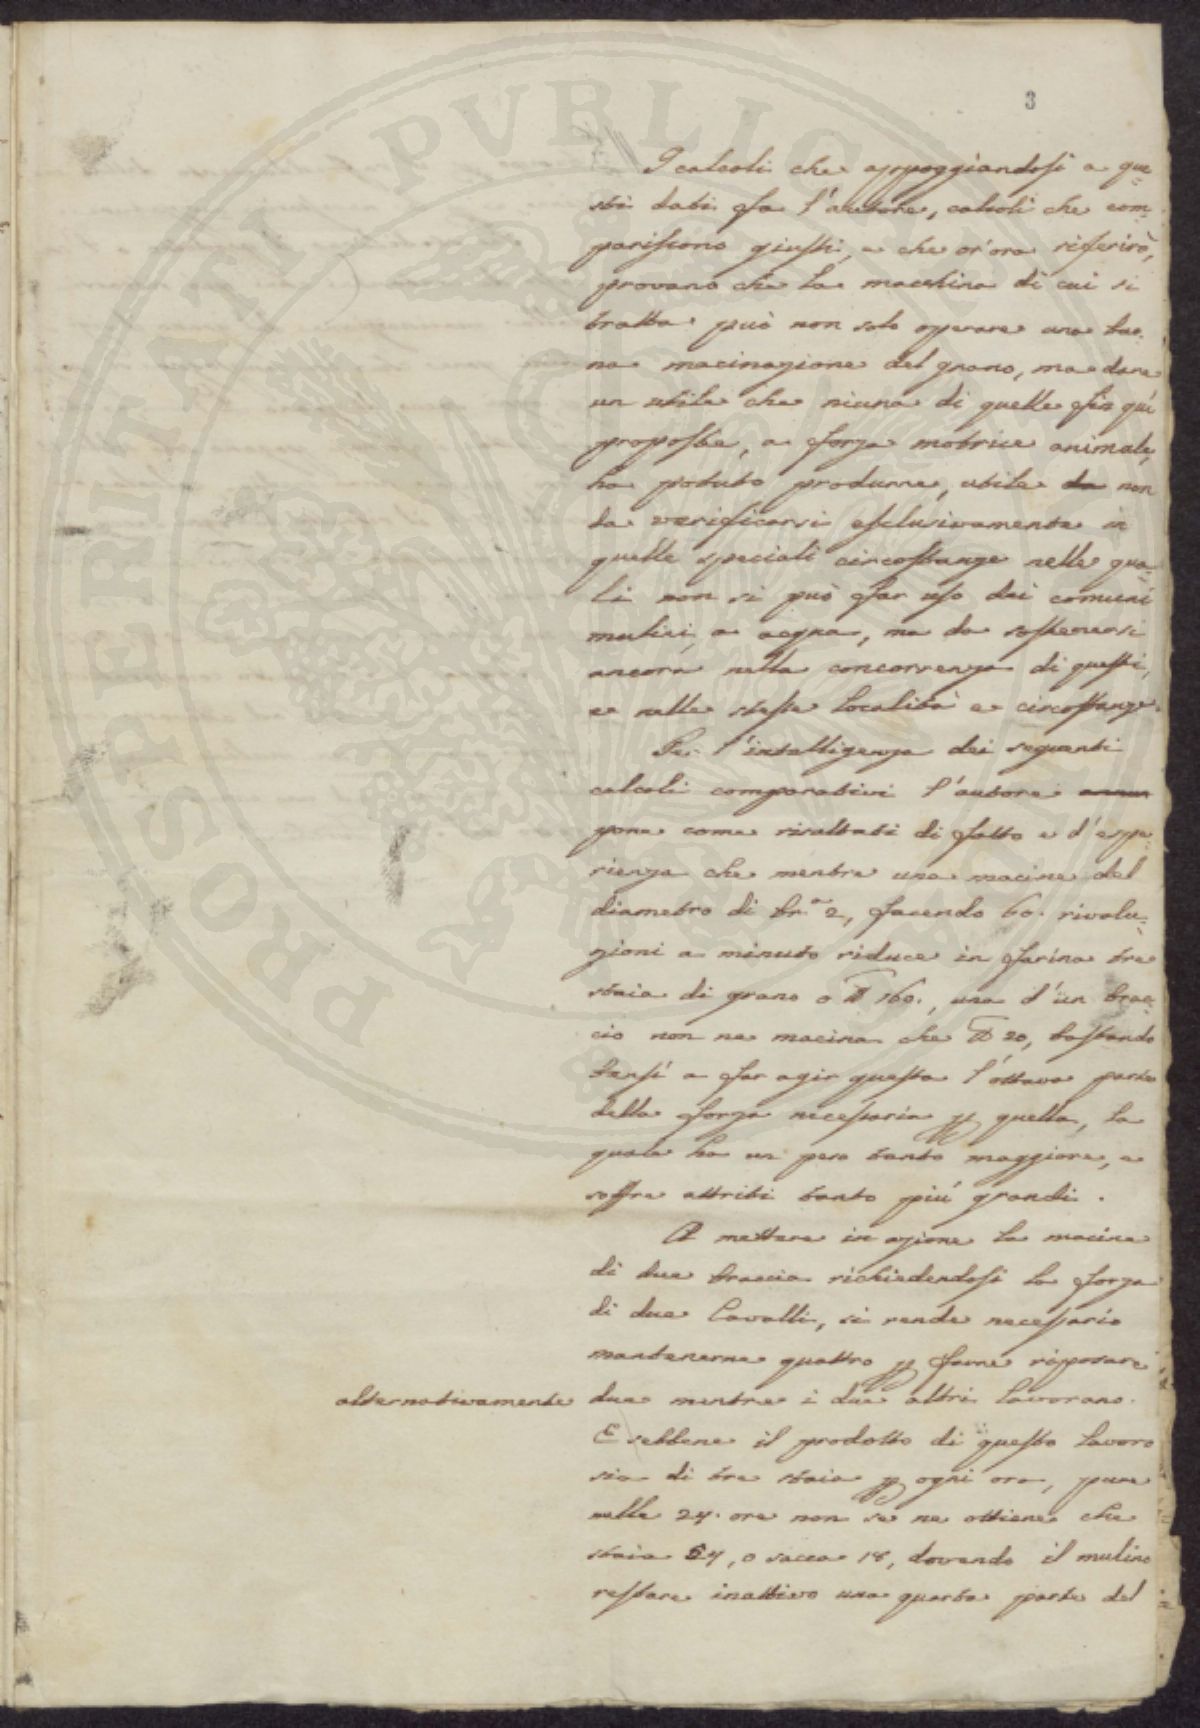 3
I calcoli che appoggiandosi a que=
sti dati fa l'autore, calcoli che com=
pariscono giusti, e che or'ora riferirò,
provano che la macchina di cui si
tratta può non solo operare una buo=
na macinazione del grano, ma dare
un utile che niuna di quelle fin quì
proposte, a forza motrice animale,
ha potuto produrne, utile da non
da verificarsi esclusivamente in
quelle speciali circostanze nelle qua=
li non si può far uso dei comuni
mulini a acqua, ma da sostenersi
ancora nella concorrenza di questi,
e nelle stesse località e circostanze.
Per l'intelligenza dei seguenti
calcoli comparativi l'autore
pone come risultati di fatto e d'espe=
rienza che mentre una macine del
diametro di br.ª 2, facendo 60. rivolu=
zioni a minuto riduce in farina tre
staia di grano o ℔ 160., una d'un brac=
cio non ne macina che ℔ 20, bastando
bensí a far agir questa l'ottava parte
della forza necessaria p quella, la
quale ha un peso tanto maggiore, e
soffre attriti tanto piú grandi.
A mettere in azione la macine
di due braccia richiedendosi la forza
di due Cavalli, si rende necessario
mantenerne quattro p farne riposare
alternativamente due mentre i due altri lavorano.
E sebbene il prodotto di questo lavoro
sia di tre staia p ogni ora, pure
nelle 24. ore non se ne ottiene che
staia 54, o sacca 18, dovendo il mulino
restare inattivo una quarta parte del
PROSPERITATI PVBLICAE